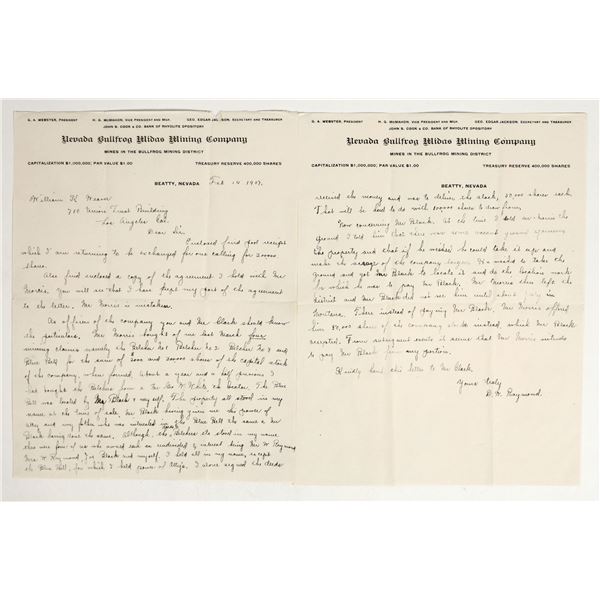 G. A. WEBSTER, PRESIDENT H. G. McMAHON, VICE PRESIDENT AND MGR. GEO. EDGAR JACKSON, SECRETARY AND TREASURER
JOHN S. COOK & CO. BANK OF RHYOLITE DPOSITORY
Nevada Bullfrog Midas Mining Company
MINES IN THE BULLFROG MINING DISTRICT
CAPITALIZATION $1,000,000; PAR VALUE $1.00 TREASURY RESERVE 400,000 SHARES
BEATTY, NEVADA Feb 14 1907.
William K Weaver
Union Trust Building
Los Angeles Cal.
Dear Sir.
Enclosed find pool receipt
which I am returning to be exchanged for one calling for 30000
shares.
Also find enclosed a copy of the agreement I hold with Mr
Morris. You will see that I have kept my part of the agreement
to the letter. Mr Morris is mistaken.
As officers of the company you and Mr Clack should know
the particulars. Mr Morris bought of me last March four
mining claims namely the Belcher No 1 Belcher No 2 Belcher No 3 and
Blue Bell for the sum of and 200000 shares of the capital stock
of the company, when formed. About a year and a half previous I
had bought the Belchers from a Mr Geo W. White The Blue
Bell was located by Mr Black & my self. The property all stood in my
name at the time of sale, Mr Black having given me the power of
atty and my father who was interested in the Blue Bell the same as Mr
Black having done the same, although, the Belchers stood in my name
there were four of us who owned each an undivided ¼ interest being Mr W Raymond
Mrs W Raymond, Joe Black and myself. I held all in my name, except
the Blue Bell, for which I held power of Att'y. I alone signed the deeds
G. A. WEBSTER, PRESIDENT H. G. McMAHON, VICE PRESIDENT AND MGR. GEO. EDGAR JACKSON, SECRETARY AND TREASURER
JOHN S. COOK & CO. BANK OF RHYOLITE DPOSITORY
Nevada Bullfrog Midas Mining Company
MINES IN THE BULLFROG MINING DISTRICT
CAPITALIZATION $1,000,000; PAR VALUE $1.00 TREASURY RESERVE 400,000 SHARES
BEATTY, NEVADA
received the money and was to deliver the stock, 50,000 shares each.
That will be hard to do with 200000 shares to draw from.
Now concerning Mr Black. At the time I sold
ground I told him that there was some vacant ground joining
the property and that if he wished he could take it up and
make the of the company larger. He needed to take the
ground and got Mr Black to locate it and do the location work
for which he was to pay Mr Black. Mr Morris then left the
district and Mr Black did not see him until about July in
Montana. There instead of paying Mr Black, Mr Morris offered
him 50,000 shares of the company stock instead, which Mr Black
accepted. From subsequent events it seems that Mr Morris intends
to pay Mr Black from my portion.
Kindly hand this letter to Mr Clack.
Yours truly
D. W. Raymond.